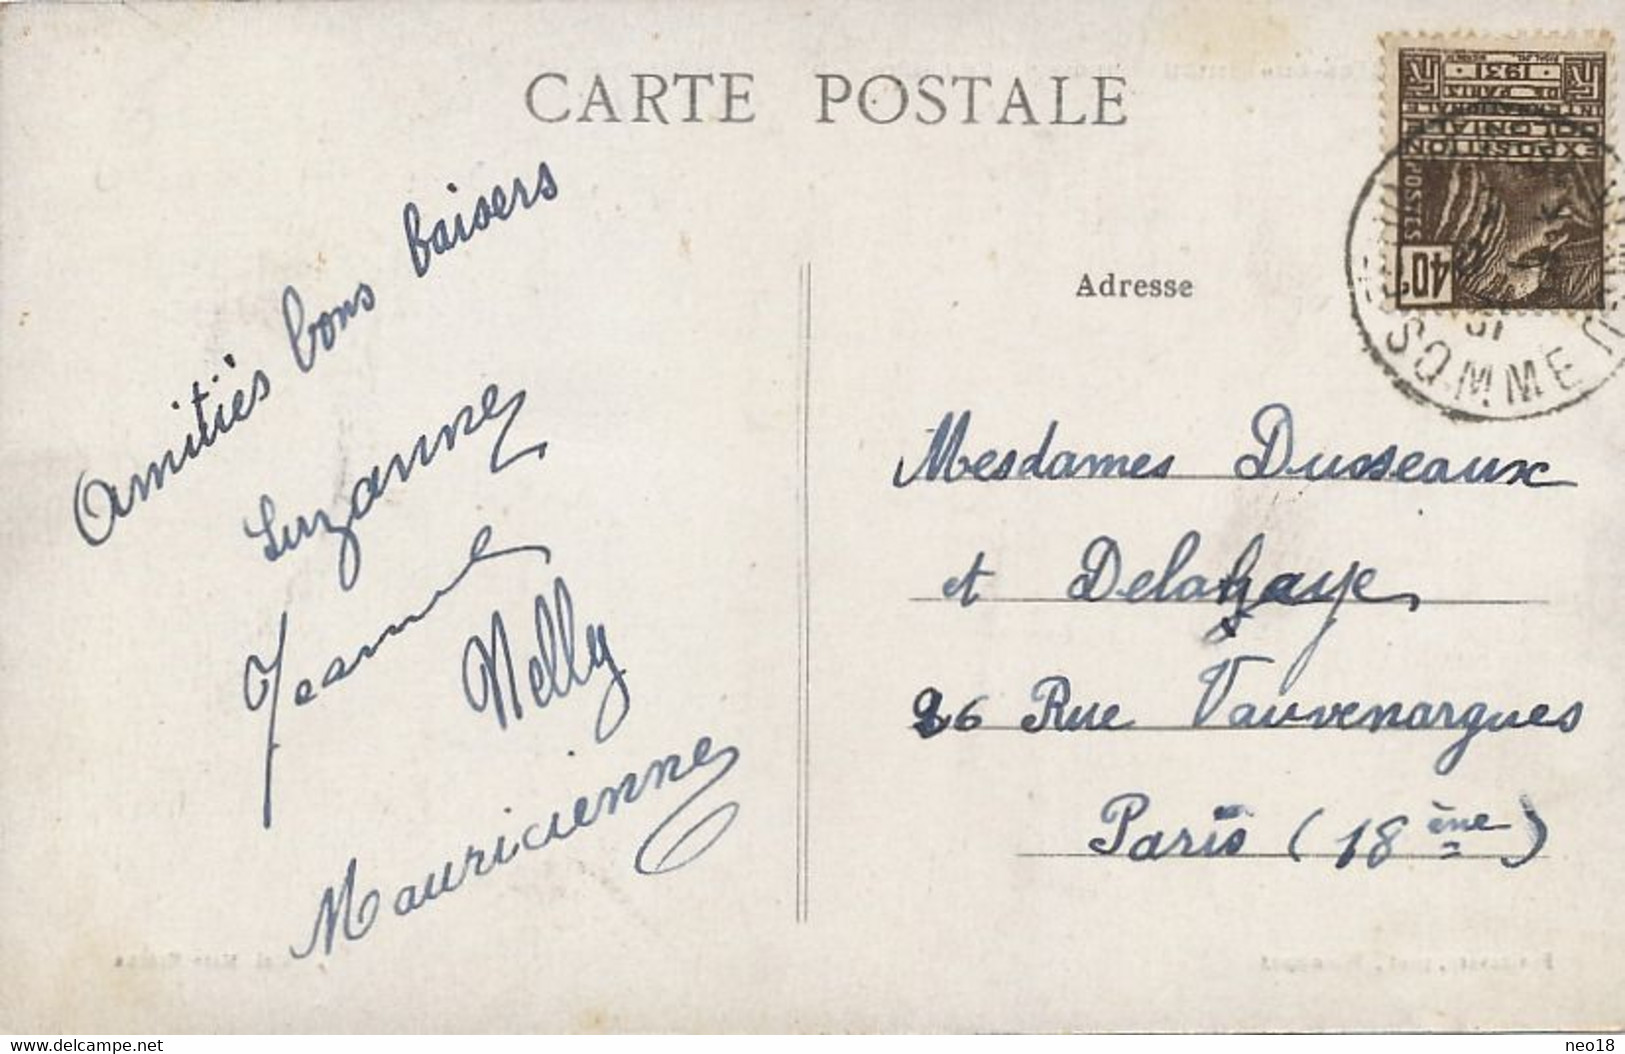 CARTE POSTALE
1931
EXPOSITION
COLONIALE
INTERNATIONALE
DE PARIS
POSTES
40c
SOMME
31
Adresse
Amitiés bons baisers
Suzanne
Jeanne
Nelly
Mauricienne
Mesdames Dusseaux
et Delahaye
26 Rue Vauvenargues
Paris (18ème)
neo18
delcampe.net